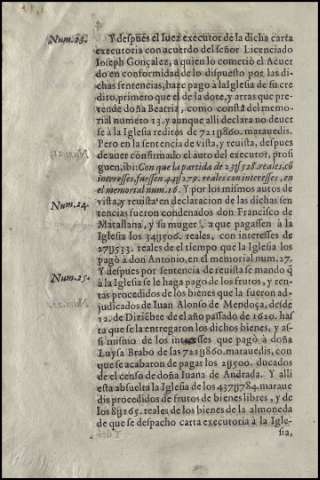 Num. 23.
Y despues el Iuez executor de la dicha carta
executoria con acuerdo del señor Licenciado
Ioseph Gonçalez, a quien lo cometiò el Acuer
do en conformidad de lo dispuesto por las di-
chas sentencias, haze pago à la Iglesia de su cre
dito, primero que el de la dote, y arras que pre-
tende doña Beatriz, como consta del memo-
rial numero 13. y aunque alli declara no deuer
se à la Iglesia reditos de 721U860. marauedis.
Pero en la sentencia de vista, y reuista, despues
de auer confirmado el auto del executor, prosi
guen, ibi: Con que la partida de reales, cō
interesses, fuessen reales con interesses, en
el memorial num. 16. Y por los mismos autos de
Num. 24.
vista, y reuista en declaracion de las dichas sen
tencias fueron condenados don Francisco de
Matallana, y su muger, a que pagassen à la
Iglesia los 34U506. reales, con interesses de
27U533. reales de el tiempo que la Iglesia los
pagò a don Antonio, en el memorial num. 27.
Num. 25.
Y despues por sentencia de reuista se mandò q̃
à la Iglesia se le haga pago de los frutos, y ren-
tas procedidos de los bienes que la fueron ad-
judicados de Iuan Alonso de Mendoça, desde
12. de Diziēbre de el año passado de 1620. has
ta que se la entregaron los dichos bienes, y as-
si mismo de los interesses que pagò a doña
Luysa Brabo de las 721U860. marauedis, con
que se acabaron de pagar los 2U500. ducados
de el censo de doña Iuana de Andrada. Y alli
esta absuelta la Iglesia de los 437U784. maraue
dis procedidos de frutos de bienes libres, y de
los 8U165. reales de los bienes de la almoneda
de que se despacho carta executoria à la Igle-
sia,